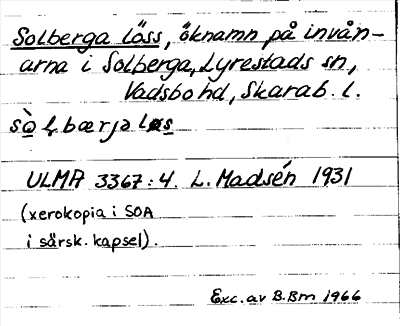 Solberga löss, öknamn på invån-
arna i Solberga, Lyrestads sn,
Vadsbo hd, Skarab. l.
ULMA 3367:4. L. Madsén 1931
(xerokopia i SOA
i särsk. kapsel).
Exc. av B.Bm 1966